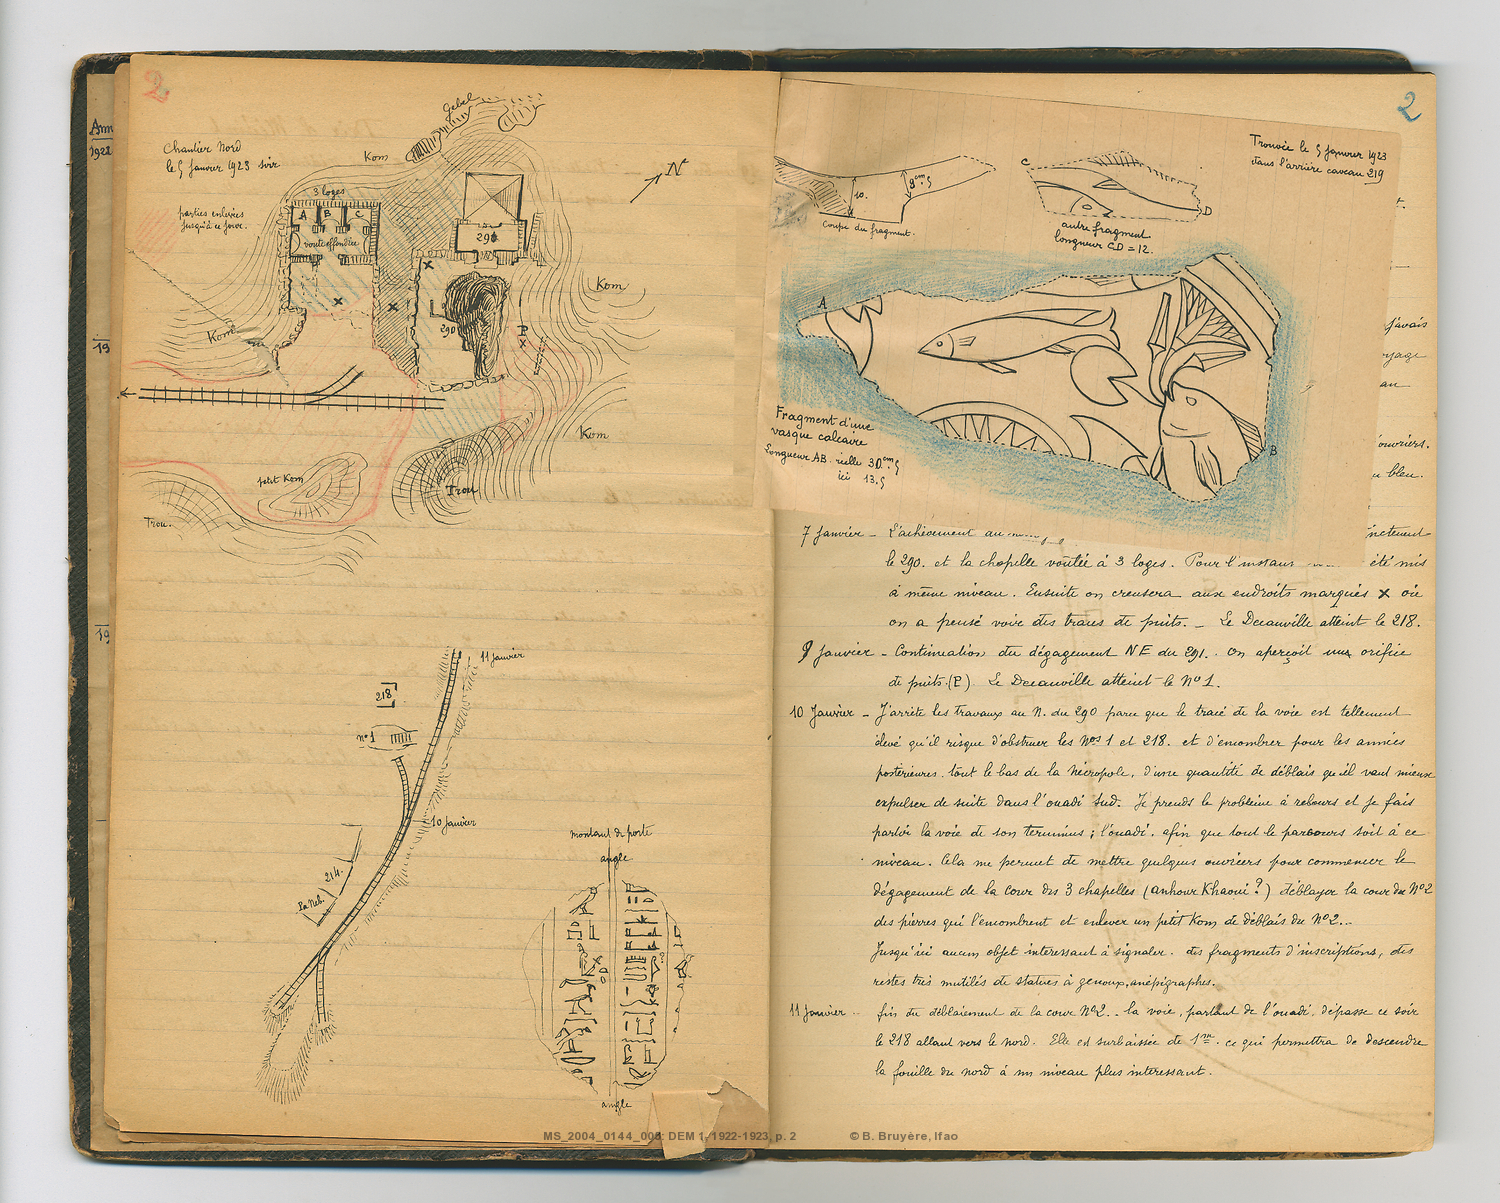 2
Chantier Nord
le 5 Janvier 1923 soir
parties enlevées
jusqu'à ce jour.
Gebel
Kom
N
3 loges
A B C
voute effondrée
291
Kom
290
P
Kom
Kom
petit Kom
Trou
Trou.
11 Janvier
218
n° 1
10 Janvier
214.
Pa Neb.
montant de porte
angle
angle
Ann
1922
19
19
2
Trouvée le 5 Janvier 1923
dans l'arrière caveau 219
10.
9 cm.5
Coupe du fragment.
C
D
autre fragment
longueur CD = 12.
A
B
Fragment d'une
vasque calcaire
Longueur AB. réelle 30 cm.5
ici 13.5
t.
J'avais
oyage
au
ouvriers.
u bleu.
7 Janvier – L'achèvement au nctement
le 290. et la chapelle voutée à 3 loges. Pour l'instant été mis
à même niveau. Ensuite on creusera aux endroits marqués x où
on a pensé voir des traces de puits. – Le Decauville atteint le 218.
9 Janvier – Continuation du dégagement NE du 291. On aperçoit un orifice
de puits (P) Le Decauville atteint le N° 1.
10 Janvier – J'arrête les travaux au N. du 290 parce que le tracé de la voie est tellement
élevé qu'il risque d'obstruer les Nos 1 et 218. et d'encombrer pour les années
postérieures. tout le bas de la nécropole, d'une quantité de déblais qu'il vaut mieux
expulser de suite dans l'ouadi Sud. Je prends le problème à rebours et je fais
partir la voie de son terminus ; l'ouadi. afin que tout le parcours soit à ce
niveau. Cela me permet de mettre quelques ouvriers pour commencer le
dégagement de la cour des 3 chapelles (anhour Khaoui ?) déblayer la cour du N° 2
des pierres qui l'encombrent et enlever un petit Kom de déblais du N° 2..
Jusqu'ici aucun objet interessant à signaler. des fragments d'inscriptions, des
restes très mutilés de statues à genoux, anépigraphes.
11 Janvier .. fin du déblaiement de la cour N° 2. – la voie, partant de l'ouadi. dépasse ce soir
le 218 allant vers le nord. Elle est surbaissée de 1m. ce qui permettra de descendre
la fouille du nord à un niveau plus interessant.
MS_2004_0144_008: DEM 1, 1922-1923, p. 2 © B. Bruyère, Ifao